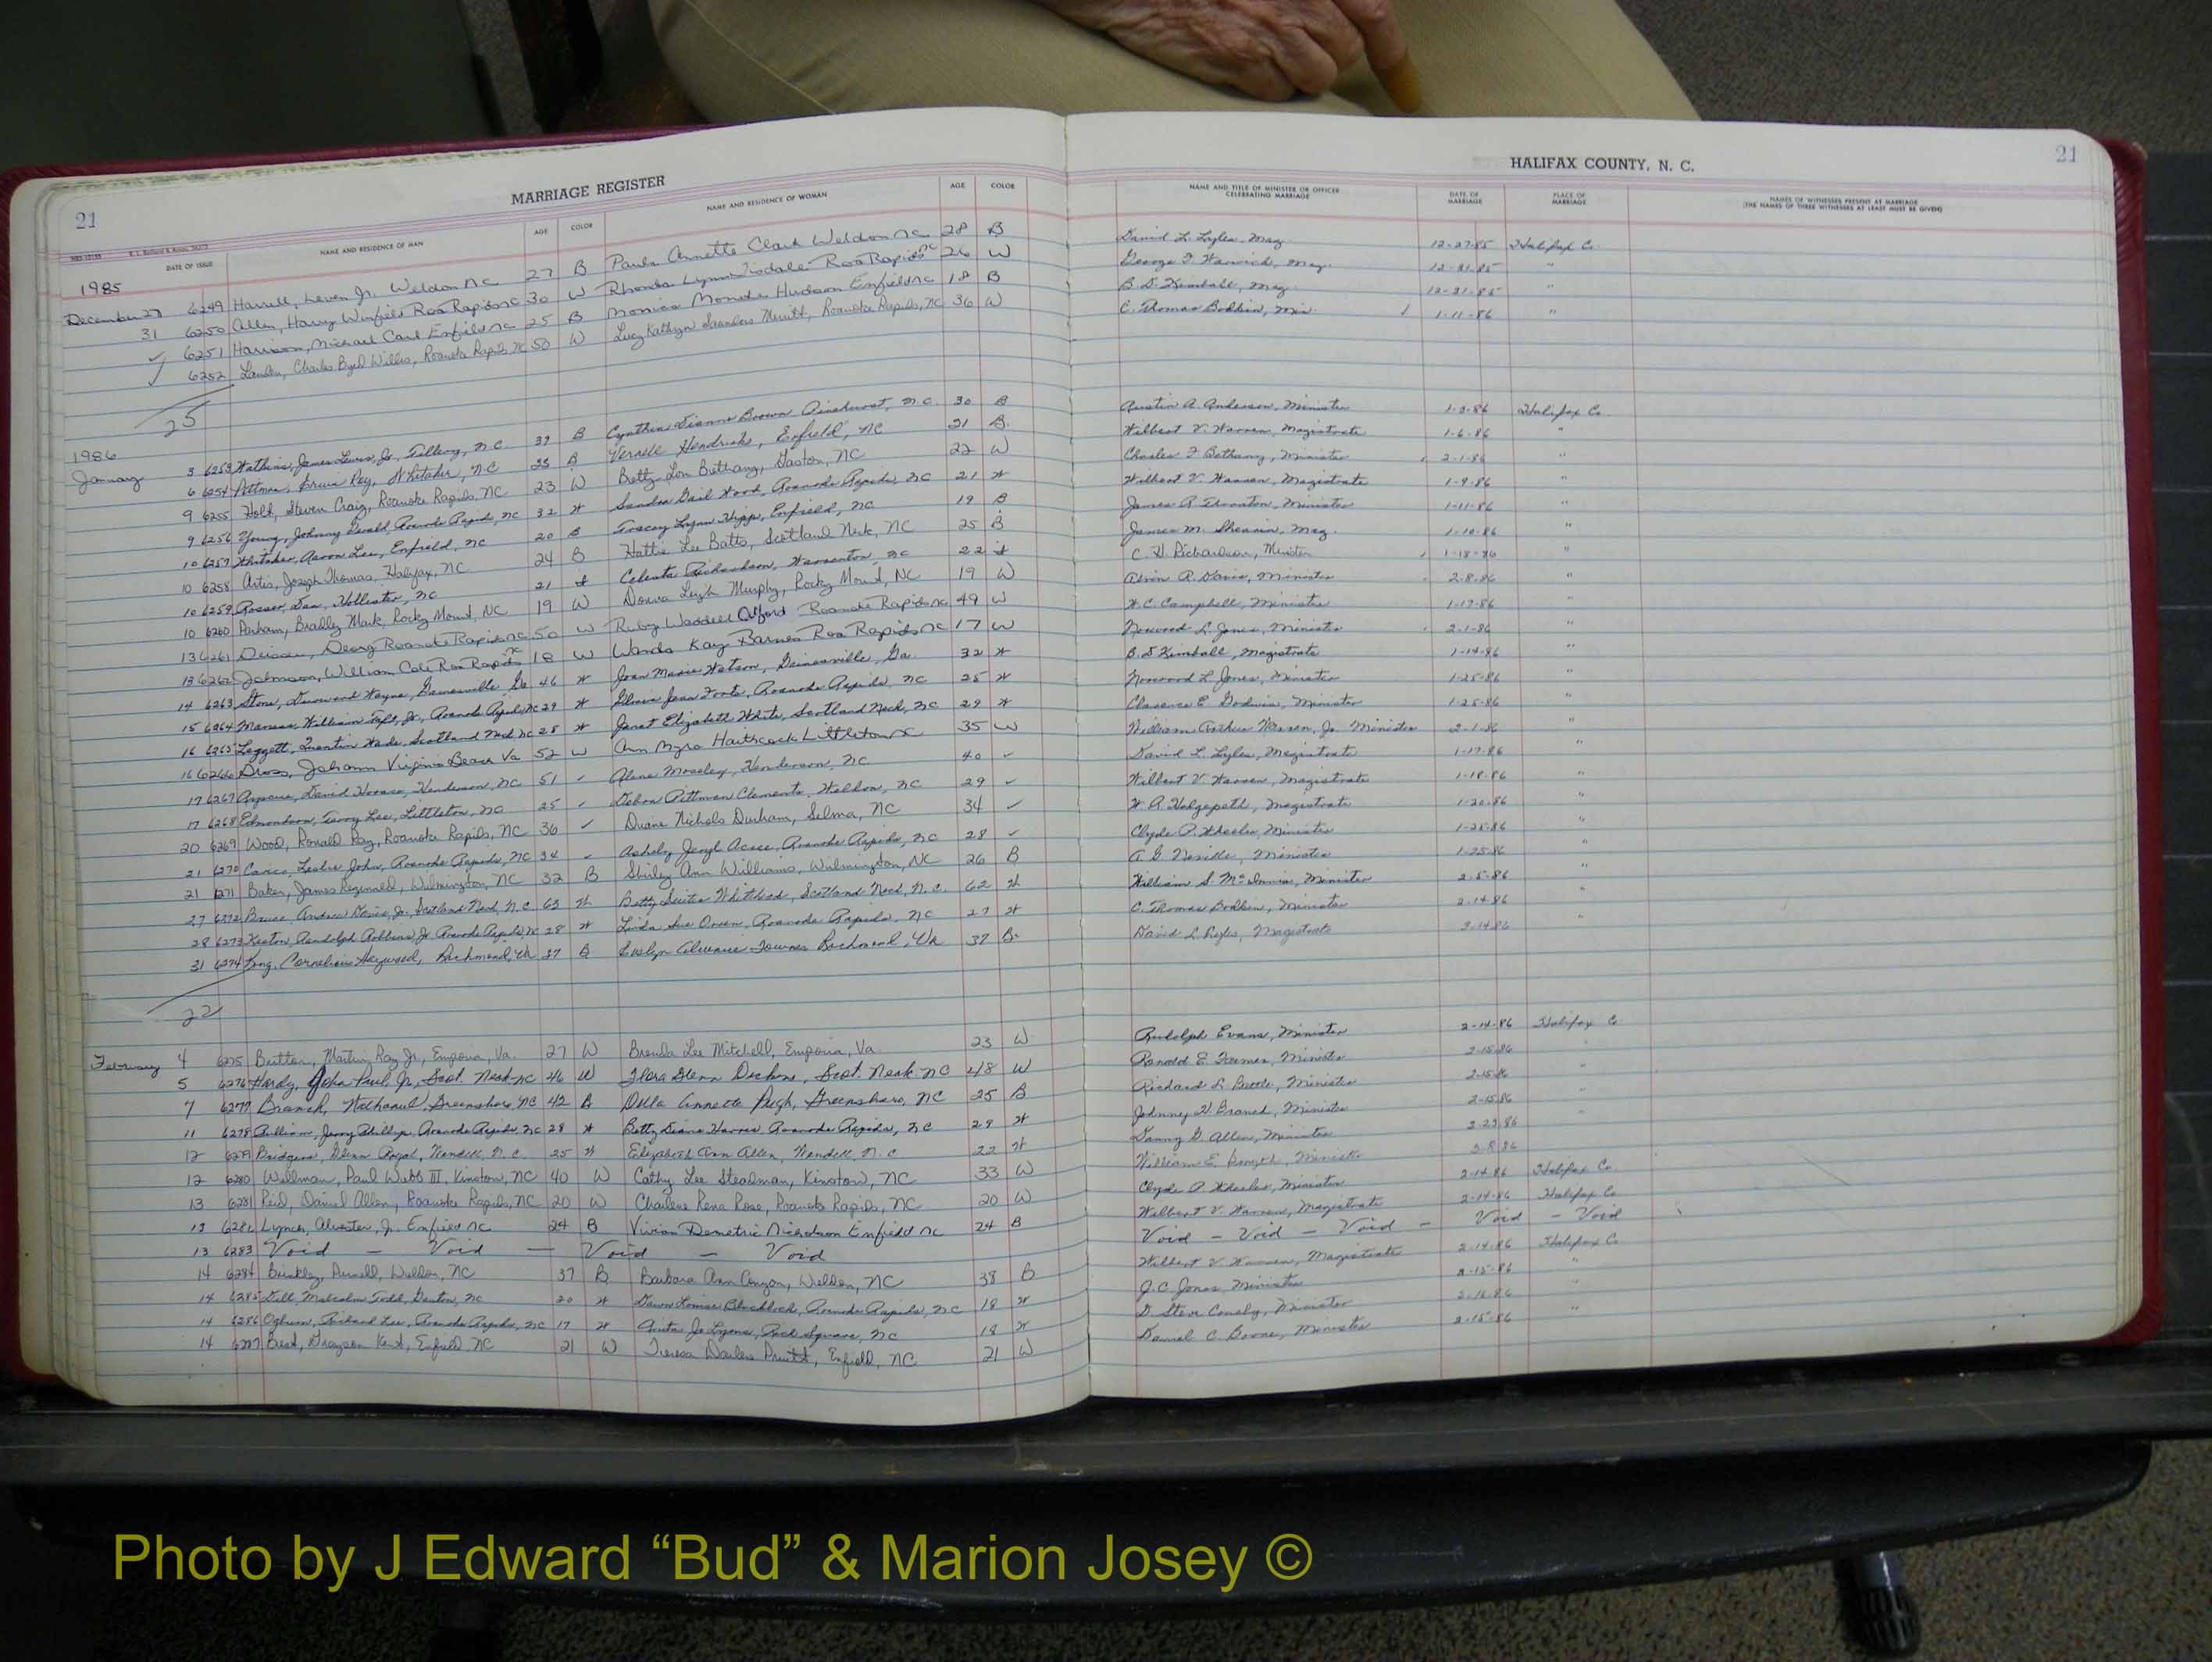 MARRIAGE REGISTER
HALIFAX COUNTY, N. C.
21
21
DATE OF ISSUE NAME AND RESIDENCE OF MAN AGE COLOR NAME AND RESIDENCE OF WOMAN AGE COLOR NAME AND TITLE OF MINISTER OR OFFICER CELEBRATING MARRIAGE DATE OF MARRIAGE PLACE OF MARRIAGE NAMES OF WITNESSES PRESENT AT MARRIAGE (THE NAMES OF THREE WITNESSES AT LEAST MUST BE GIVEN)
1985
December 27 6249 Harrell, Jr. Weldon NC 27 B Paula Annette Clark Weldon NC 28 B David L. Lyles, Mag. 12-27-85 Halifax Co.
31 6250 Allen, Harry Winfield Roa Rapids NC 30 W Rhonda Lynn Tisdale Roa Rapids NC 26 W George Mag. 12-31-85 "
6251 Harrison, Michael Carl Enfield NC 25 B Monica Hudson Enfield NC 18 B B. D. Kimball, Mag. 12-31-85 "
6252 Charles Byrd Willis, Roanoke Rapids, NC 50 W Lucy Kathryn Saunders Merritt, Roanoke Rapids, NC 36 W C. Thomas Bobbin, Min. 1-11-86 "
25
1986
January 3 6253 Watkins, James Lewis, Jr. Tillery, N.C. B Cynthia Dianne Brown Pinehurst, N.C. 30 B Austin A. Anderson, Minister 1-3-86 Halifax Co.
6 6254 Pittman, Ray, Whitaker, N.C. B Vernell Hendricks, Enfield, NC B. Wilbert V. Warren, Magistrate 1-6-86 "
9 6255 Holt, Steven Craig, Roanoke Rapids, NC 23 W Betty Lou Bethany, Gaston, NC 22 W Charles F. Bethany, Minister 2-1-86 "
9 6256 Young, Johnny Roanoke Rapids, NC 32 W Sandra Gail Wood, Roanoke Rapids, NC 21 W Wilbert V. Warren, Magistrate 1-9-86 "
10 6257 Whitaker, Aaron Lee, Enfield, NC 20 B Tracey Lynn Enfield, NC 19 B James R. Thornton, Minister 1-11-86 "
10 6258 Artis, Joseph Thomas, Halifax, NC 24 B Hattie Lee Batts, Scotland Neck, NC 25 B James M. Shearin, Mag. 1-10-86 "
10 6259 Hollister, NC 21 Celesta Richardson, Warrenton, NC 22 C. H. Richardson, Minister 1-18-86 "
10 6260 Parham, Bradly Mark, Rocky Mount, NC 19 W Donna Leigh Murphy, Rocky Mount, NC 19 W Alvin R. Davis, Minister 2-8-86 "
13 6261 Georg Roanoke Rapids NC 50 W Ruby Waddell Roanoke Rapids NC 49 W W. C. Campbell, Minister 1-17-86 "
13 6262 Johnson, William Cole Roa Rapids NC 18 W Wanda Kay Barnes Roa Rapids NC 17 W Norwood L. Jones, Minister 2-1-86 "
14 6263 Stone, Durwood Wayne, Gainesville, Ga 46 W Joan Marie Watson, Gainesville, Ga. 32 W B. D. Kimball, Magistrate 1-14-86 "
15 6264 William Jr., Roanoke Rapids NC 29 W Gloria Jean Foote, Roanoke Rapids, NC 25 W Norwood L. Jones, Minister 1-25-86 "
16 6265 Leggett, Quentin Wade, Scotland Neck NC 28 W Janet Elizabeth White, Scotland Neck, NC 29 W Clarence E. Godwin, Minister 1-25-86 "
16 6266 Johann Virginia Beach Va 52 W Ann Myra Haithcock Littleton NC 35 W William Arthur Jr. Minister 2-1-86 "
17 6267 David Horace, Henderson, NC 51 Alene Moseley, Henderson, NC 40 David L. Lyles, Magistrate 1-17-86 "
17 6268 Edmondson, Terry Lee, Littleton, NC 25 Debra Pittman Clements, Weldon, NC 29 Wilbert V. Warren, Magistrate 1-18-86 "
20 6269 Wood, Ronald Ray, Roanoke Rapids, NC 36 Duane Nichols Durham, Selma, NC 34 Magistrate 1-20-86 "
21 6270 Leslie John, Roanoke Rapids, NC 34 Roanoke Rapids, NC 28 Clyde P. Wheeler, Minister 1-25-86 "
21 6271 Baker, James Reginald, Wilmington, NC 32 B Shirley Ann Williams, Wilmington, NC 26 B A. G. Neville, Minister 1-25-86 "
27 6272 Andrew Jr. Scotland Neck, N.C. 63 W Betty Whitehead, Scotland Neck, N.C. 62 W William S. McInnis, Minister 2-5-86 "
28 6273 Keeton, Randolph Robbins Jr. Roanoke Rapids, NC 28 W Linda Sue Owen, Roanoke Rapids, NC 27 W C. Thomas Bobbin, Minister 2-14-86 "
31 6274 King, Cornelius Haywood, Richmond, VA 37 B Evelyn Townes Richmond, VA 37 B. David L. Lyles, Magistrate 2-14-86 "
22
February 4 6275 Britton, Martin Ray Jr., Emporia, Va. 27 W Brenda Lee Mitchell, Emporia, Va 23 W Rudolph Evans, Minister 2-14-86 Halifax Co
5 6276 Hardy, John Paul, Jr, Scot. Neck NC 46 W Flora Glenn Dickens, Scot. Neck NC 48 W Ronald E. Farmer, Minister 2-15-86 "
7 6277 Branch, Nathaniel, Greensboro, NC 42 B Della Annette Pugh, Greensboro, NC 25 B Richard L. Minister 2-15-86 "
11 6278 Jerry Phillip, Roanoke Rapids, NC 28 W Betty Diane Harris Roanoke Rapids, NC 29 W Johnny Minister 2-15-86 "
12 6279 Bridgers, Glenn Royal, Wendell, N.C. 25 W Elizabeth Ann Allen, Wendell, N.C 22 W Danny G. Allen, Minister
12 6280 Wellman, Paul Webb III, Kinston, NC 40 W Cathy Lee Steadman, Kinston, NC 33 W William E. Minister
13 6281 Reid, Daniel Allen, Roanoke Rapids, NC 20 W Charlene Rena Rose, Roanoke Rapids, NC 20 W Clyde P. Wheeler, Minister 2-14-86 Halifax Co.
13 6282 Lynch, Alvester, Jr. Enfield NC 24 B Vivian Demetric Nicholson Enfield NC 24 B Wilbert V. Warren, Magistrate 2-14-86 Halifax Co.
13 6283 Void – Void – Void – Void Void – Void – Void – Void – Void
14 6284 Weldon, NC 37 B Barbara Ann Weldon, NC 38 B Wilbert V. Warren, Magistrate 2-14-86 Halifax Co
14 6285 Dill, Malcolm Todd, Gaston, NC 20 W Dawn Louise Blacklock, Roanoke Rapids, NC 18 W J. C. Jones, Minister 2-15-86 "
14 6286 Ogburn, Richard Lee, Roanoke Rapids, NC 17 W Anita Jo Lyons, Rich Square, NC 18 W D. Steve Minister 2-16-86
14 6287 Grayson Kent, Enfield NC 21 W Teresa Darlene Pruitt, Enfield, NC 21 W Daniel C. Boone, Minister 2-15-86 "
Photo by J Edward “Bud” & Marion Josey ©